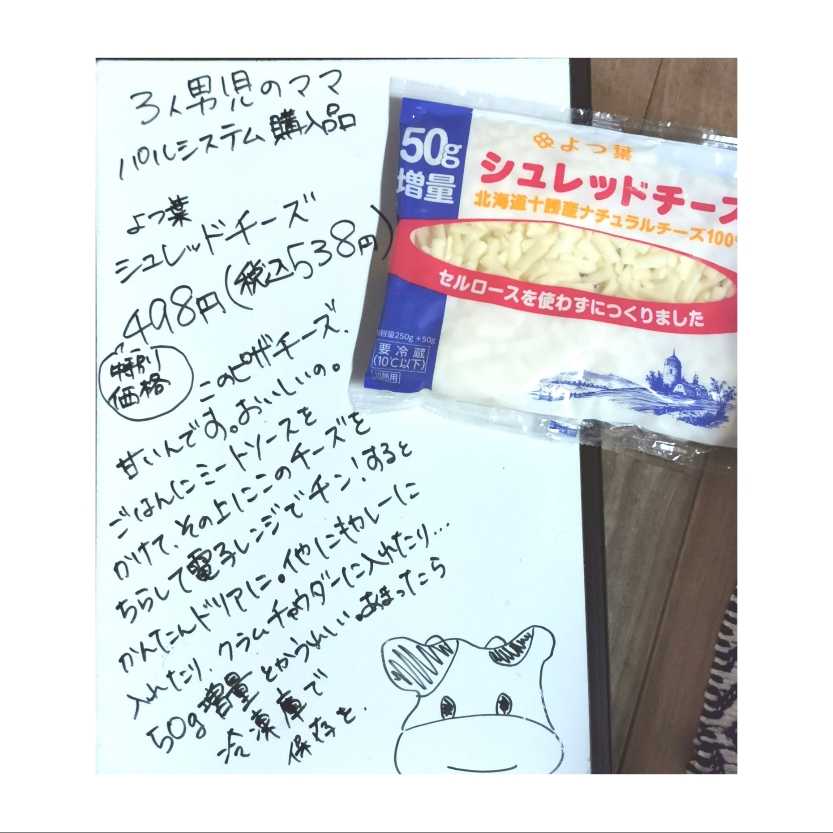 3人男児のママ
パルシステム購入品
よつ葉
シュレッドチーズ
498円(税込538円)
特別
価格
このピザチーズ、
甘いんです。おいしいの。
ごはんにミートソースを
かけて、その上にこのチーズを
ちらして電子レンジでチン!すると
かんたんドリアに。他にもカレーに
入れたり、クラムチャウダーに入れたり...
50g増量とかうれしい。あまったら
冷凍庫で
保存を。
50g
増量
よつ葉
シュレッドチーズ
北海道十勝産ナチュラルチーズ100%
セルロースを使わずにつくりました
内容量250g+50g
要冷蔵
(10℃以下)